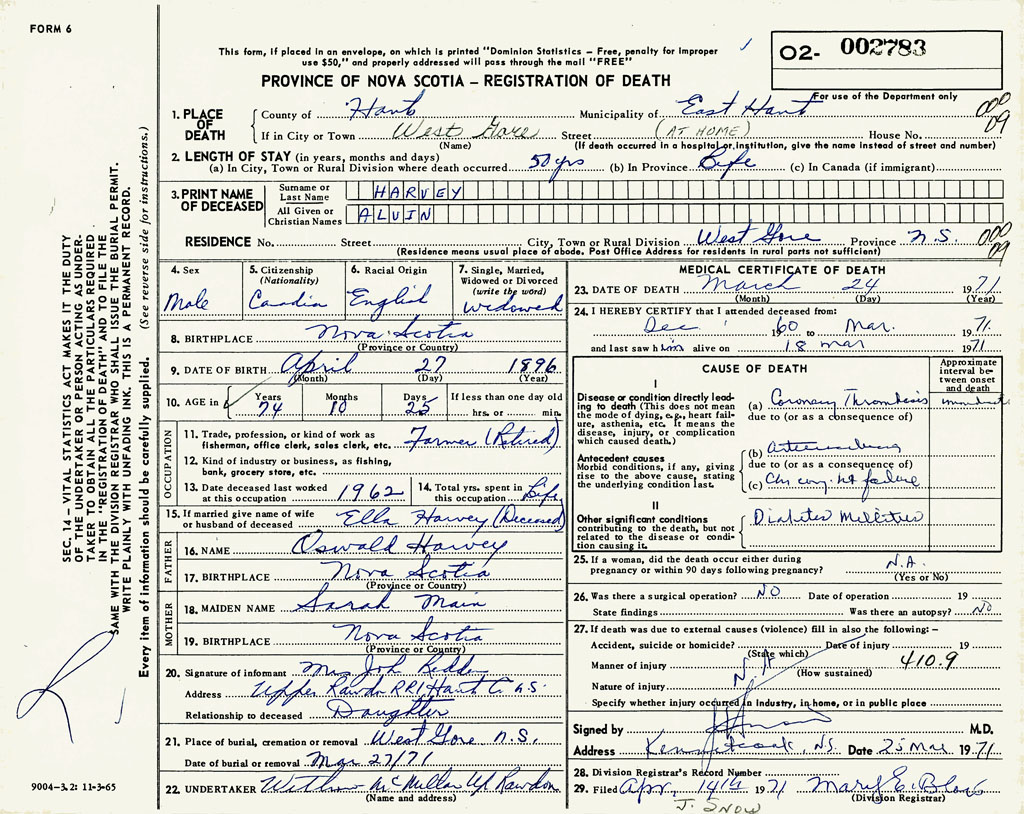 FORM 6
This form, if placed in an envelope, on which is printed "Dominion Statistics – Free, penalty for improper
use $50," and properly addressed will pass through the mail "FREE"
O2- 002783
For use of the Department only
PROVINCE OF NOVA SCOTIA – REGISTRATION OF DEATH
1. PLACE OF DEATH
County of Hants Municipality of East Hants
If in City or Town West Gore Street (AT HOME) House No.
(Name) (If death occurred in a hospital or institution, give the name instead of street and number)
000
09
2. LENGTH OF STAY (in years, months and days)
(a) In City, Town or Rural Division where death occurred 50 yrs (b) In Province Life (c) In Canada (if immigrant)
3. PRINT NAME OF DECEASED
Surname or Last Name HARVEY
All Given or Christian Names ALVIN
RESIDENCE No. Street City, Town or Rural Division West Gore Province N.S.
(Residence means usual place of abode. Post Office Address for residents in rural parts not sufficient)
000
09
4. Sex Male
5. Citizenship (Nationality) Canadia
6. Racial Origin English
7. Single, Married, Widowed or Divorced (write the word) widowed
8. BIRTHPLACE Nova Scotia
(Province or Country)
9. DATE OF BIRTH April 27 1896
(Month) (Day) (Year)
10. AGE in Years 74 Months 10 Days 25 If less than one day old hrs. or min.
OCCUPATION
11. Trade, profession or kind of work as fisherman, office clerk, sales clerk, etc. Farmer (Retired)
12. Kind of industry or business, as fishing, bank, grocery store, etc.
13. Date deceased last worked at this occupation 1962
14. Total yrs. spent in this occupation Life
15. If married give name of wife or husband of deceased Ella Harvey (Deceased)
FATHER
16. NAME Oswald Harvey
17. BIRTHPLACE Nova Scotia
(Province or Country)
MOTHER
18. MAIDEN NAME Sarah Main
19. BIRTHPLACE Nova Scotia
(Province or Country)
20. Signature of informant Mrs John
Address Upper Rawdon RR1 Hants Co. N.S.
Relationship to deceased Daughter
21. Place of burial, cremation or removal West Gore N.S.
Date of burial or removal Mar 27/71
22. UNDERTAKER Withrow McMullan Up Rawdon
(Name and address)
MEDICAL CERTIFICATE OF DEATH
23. DATE OF DEATH March 24 1971
(Month) (Day) (Year)
24. I HEREBY CERTIFY that I attended deceased from:
Dec 1960 to Mar. 1971
and last saw him alive on 18 Mar 1971
CAUSE OF DEATH
Approximate interval between onset and death
I
Disease or condition directly leading to death (This does not mean the mode of dying, e.g., heart failure, asthenia, etc. It means the disease, injury, or complication which caused death.)
(a) Coronary Thrombosis immediate
due to (or as a consequence of)
Antecedent causes
Morbid conditions, if any, giving rise to the above cause, stating the underlying condition last.
(b)
due to (or as a consequence of)
(c) Chr cong. ht failure
II
Other significant conditions contributing to the death, but not related to the disease or condition causing it.
Diabetes Mellitus
25. If a woman, did the death occur either during pregnancy or within 90 days following pregnancy? N.A.
(Yes or No)
26. Was there a surgical operation? NO Date of operation 19
State findings Was there an autopsy? No
27. If death was due to external causes (violence) fill in also the following: –
Accident, suicide or homicide? Date of injury 19
(State which)
Manner of injury 410.9
(How sustained)
N.A
Nature of injury
Specify whether injury occurred in industry, in home, or in public place
Signed by M.D.
Address Kennetcook, NS. Date 25 Mar 1971
28. Division Registrar's Record Number
29. Filed Apr. 14th 1971 Mary E.
(Division Registrar)
J. SNOW
SEC. 14 – VITAL STATISTICS ACT MAKES IT THE DUTY
OF THE UNDERTAKER OR PERSON ACTING AS UNDER-
TAKER TO OBTAIN ALL THE PARTICULARS REQUIRED
IN THE "REGISTRATION OF DEATH" AND TO FILE THE
SAME WITH THE DIVISION REGISTRAR WHO SHALL ISSUE THE BURIAL PERMIT.
WRITE PLAINLY WITH UNFADING INK. THIS IS A PERMANENT RECORD.
Every item of information should be carefully supplied. (See reverse side for instructions.)
9004-3.2: 11-3-65